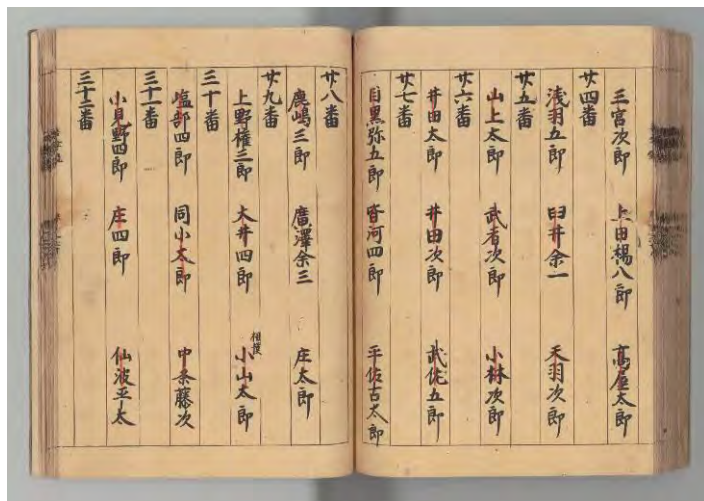 三宮次郎 上田楊八郎 高屋太郎
廿四番
浅羽五郎 臼井余一 天羽次郎
廿五番
山上太郎 武者次郎 小林次郎
廿六番
井田太郎 井田次郎 武佐五郎
廿七番
目黒弥五郎 沓河四郎 平佐古太郎
廿八番
鹿嶋三郎 廣澤余三 庄太郎
廿九番
上野権三郎 大井四郎 相模 小山太郎
三十番
塩部四郎 同小太郎 中条藤次
三十一番
小見野四郎 庄四郎 仙波平太
三十二番